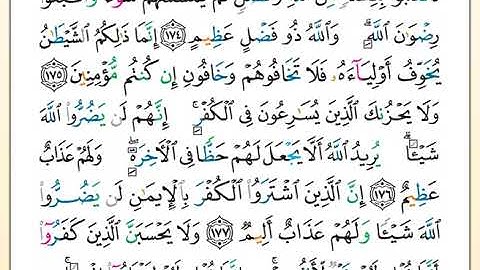 رِضْوَٰنَ ٱللَّهِ ۗ وَٱللَّهُ ذُو فَضْلٍ عَظِيمٍ ١٧٤ إِنَّمَا ذَٰلِكُمُ ٱلشَّيْطَٰنُ
يُخَوِّفُ أَوْلِيَآءَهُۥ فَلَا تَخَافُوهُمْ وَخَافُونِ إِن كُنتُم مُّؤْمِنِينَ ١٧٥
وَلَا يَحْزُنكَ ٱلَّذِينَ يُسَٰرِعُونَ فِى ٱلْكُفْرِ ۚ إِنَّهُمْ لَن يَضُرُّوا۟ ٱللَّهَ
شَيْـًٔا ۗ يُرِيدُ ٱللَّهُ أَلَّا يَجْعَلَ لَهُمْ حَظًّا فِى ٱلْءَاخِرَةِ ۖ وَلَهُمْ عَذَابٌ
عَظِيمٌ ١٧٦ إِنَّ ٱلَّذِينَ ٱشْتَرَوُا۟ ٱلْكُفْرَ بِٱلْإِيمَٰنِ لَن يَضُرُّوا۟
ٱللَّهَ شَيْـًٔا وَلَهُمْ عَذَابٌ أَلِيمٌ ١٧٧ وَلَا يَحْسَبَنَّ ٱلَّذِينَ كَفَرُوٓا۟